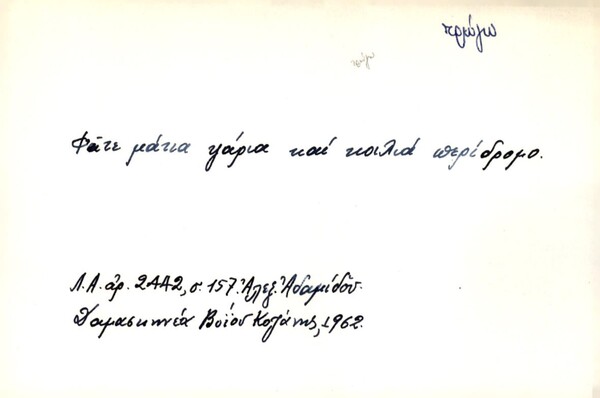 τρώγω
τρώγω
Φᾶτε μάτια ψάρια καί κοιλιά περίδρομο.
Λ.Α. ἀρ. 2442, σ. 157. Ἀλεξ. Ἀδαμίδου.
Δαμασκηνέα Βοΐου Κοζάνης, 1962.